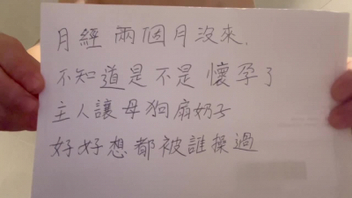 月經兩個月沒來.
不知道是不是懷孕了
主人讓母狗扇奶子
好好想都被誰操過